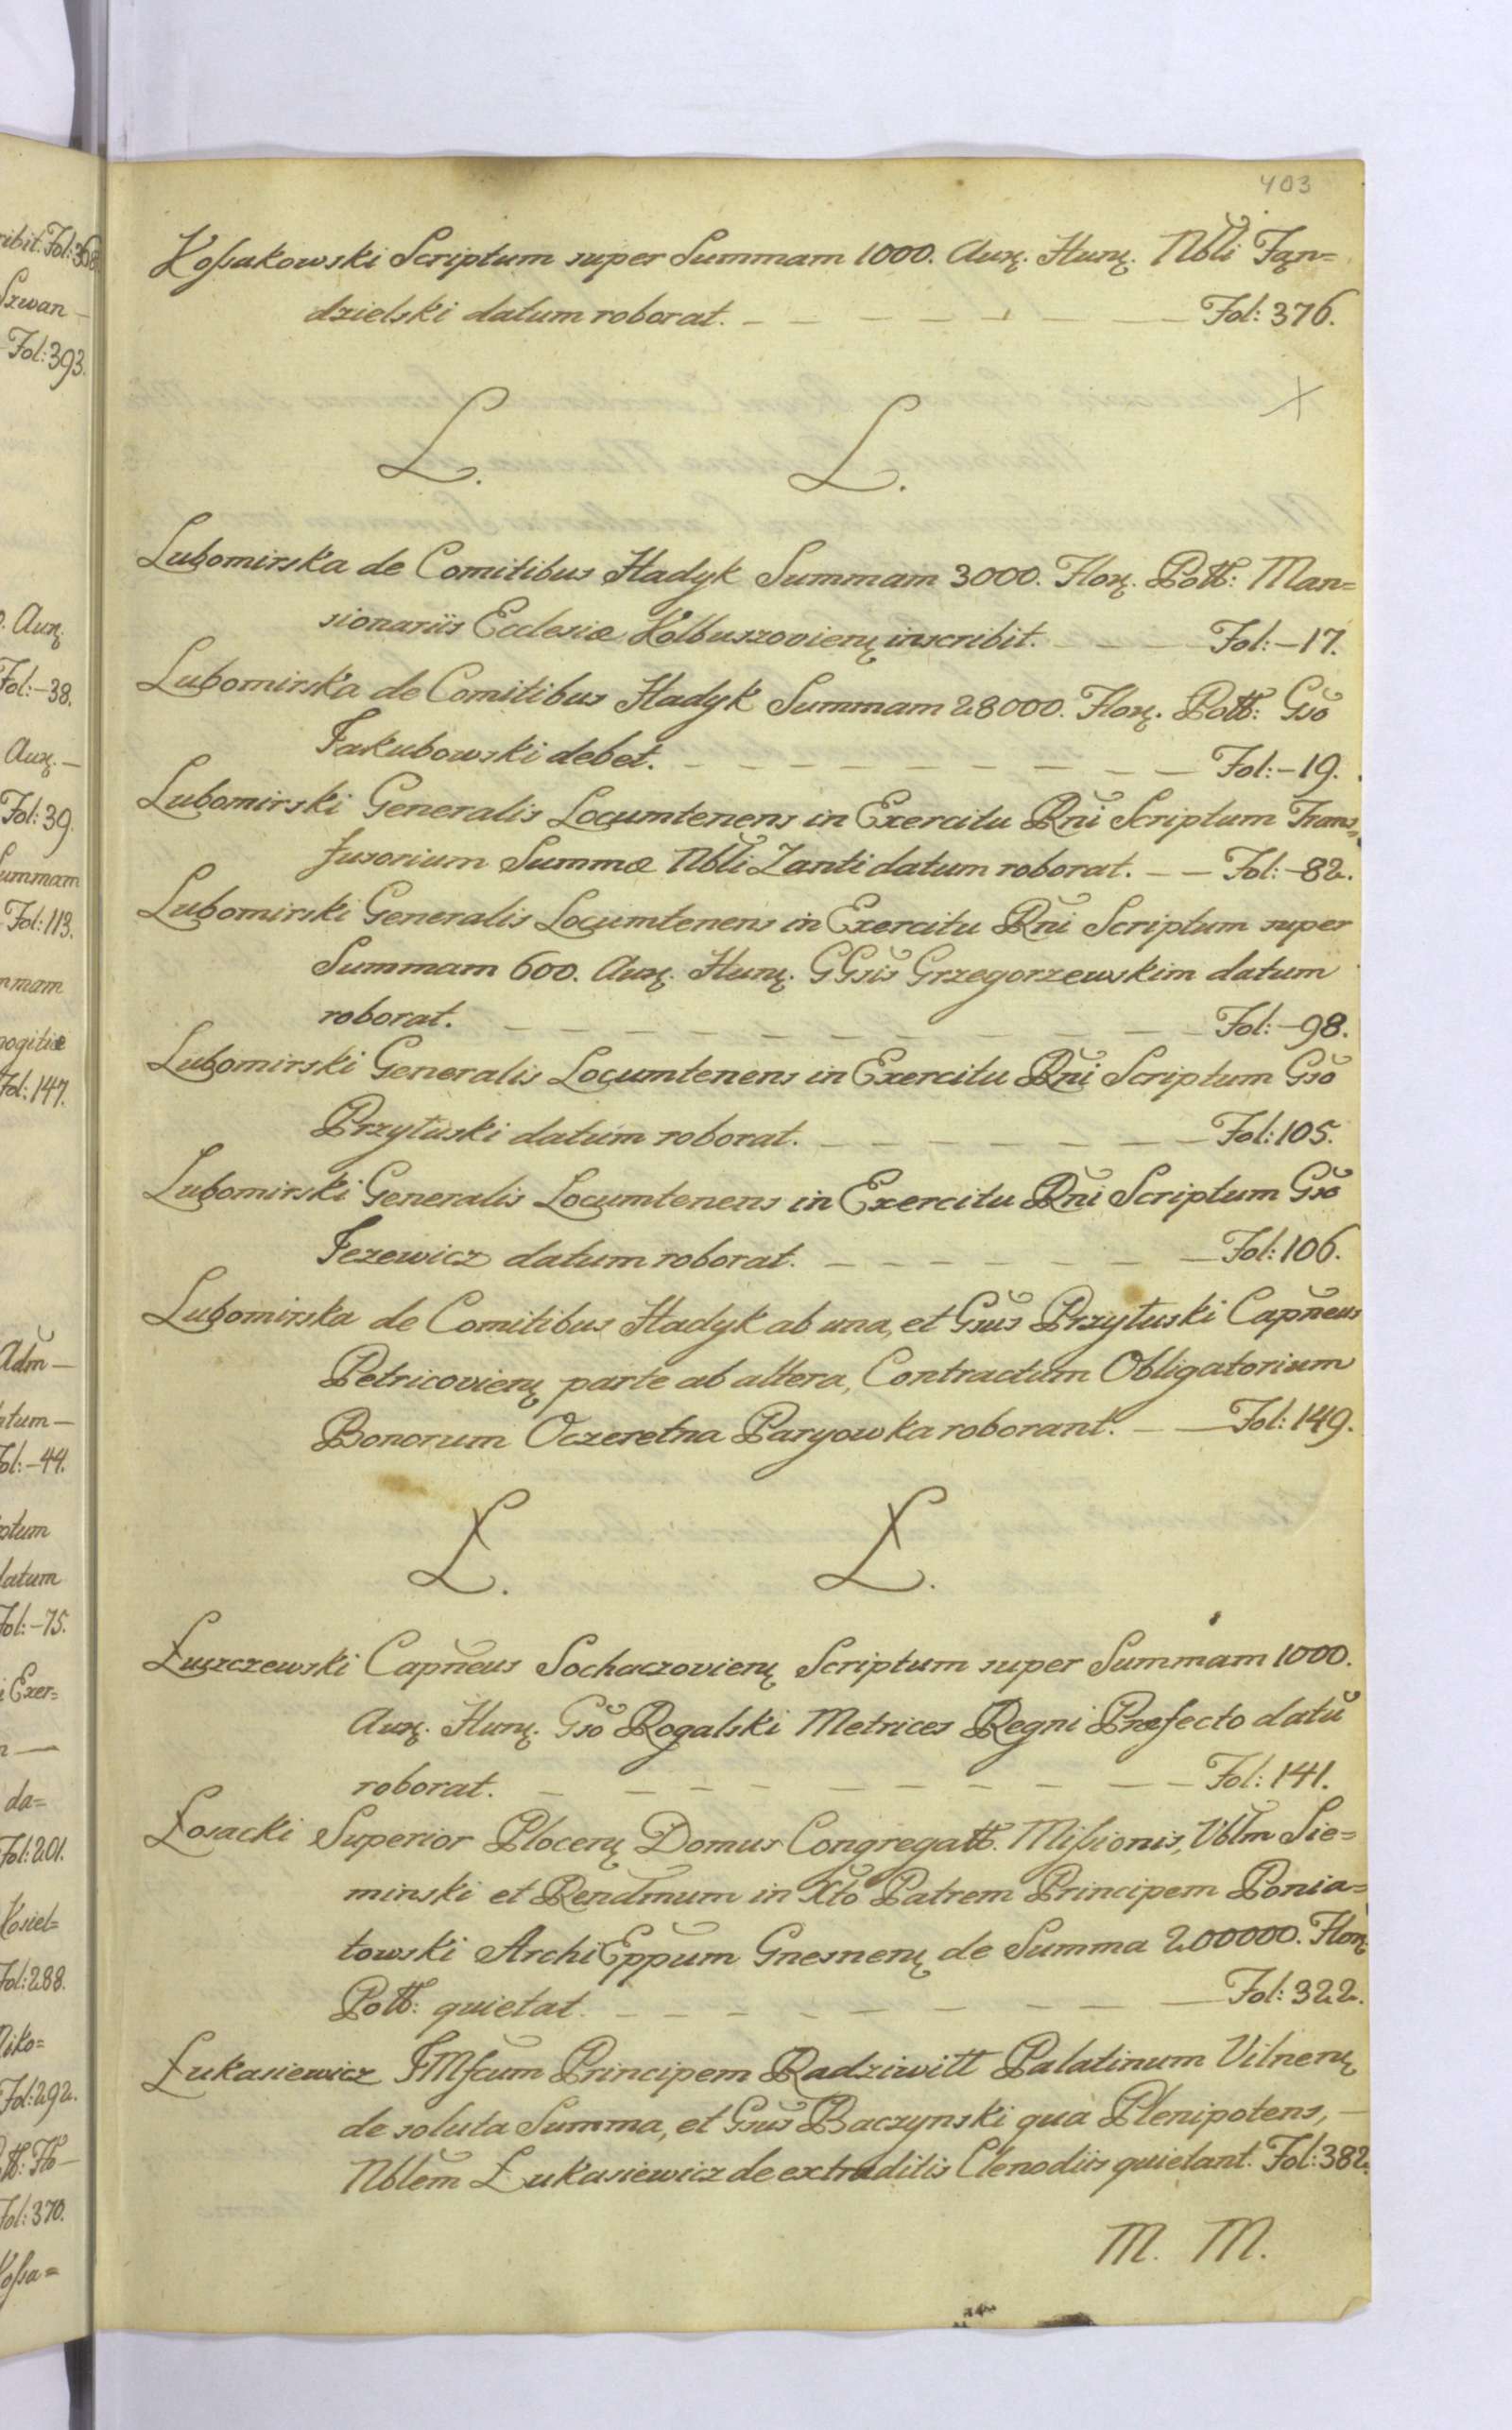 403
Kossakowski Scriptum super Summam 1000. Aur. Hun. Nbli Ján=
dzielski datum roborat. Fol: 376.
L. L.
Lubomirska de Comitibus Hadyk Summam 3000. Flor. Poll: Man=
sionariis Ecclesiæ Kolbuszovien inscribit. Fol:-17.
Lubomirska de Comitibus Hadyk Summam 28000. Flor. Poll: Gso
Jakubowski debet. Fol:-19.
Lubomirski Generalis Locumtenens in Exercitu Rni Scriptum Trans=
fusorium Summæ Nbli Zanti datum roborat. Fol:-82.
Lubomirski Generalis Locumtenens in Exercitu Rni Scriptum super
Summam 600. Aur. Hun. GGsis Grzegorzewskim datum
roborat. Fol:-98.
Lubomirski Generalis Locumtenens in Exercitu Rni Scriptum Gso
Przyłuski datum roborat. Fol: 105.
Lubomirski Generalis Locumtenens in Exercitu Rni Scriptum Gso
Jezewicz datum roborat. Fol: 106.
Lubomirska de Comitibus Hadyk ab una, et Gsus Przyłuski Capneus
Petricovien parte ab altera, Contractum Obligatorium
Bonorum Oczeretna Paryowka roborant. Fol: 149.
Ł. Ł.
Łuszczewski Capneus Sochaczovien Scriptum super Summam 1000.
Aur. Hun. Gso Rogalski Metrices Regni Præfecto datũ
roborat. Fol: 141.
Łosacki Superior Plocen Domus Congregatt. Missionis, Vblm Sie=
minski et Rendmum in Xto Patrem Principem Ponia=
towski Archi Eppum Gnesnen de Summa 200000. Flor.
Poll: quietat. Fol: 322.
Łukasiewicz JMscum Principem Radziwiłł Palatinum Vilnen
de soluta Summa, et Gsus Baczynski qua Plenipotens,
Nblem Łukasiewicz de extraditis Clenodiis quietant. Fol: 382.
M. M.